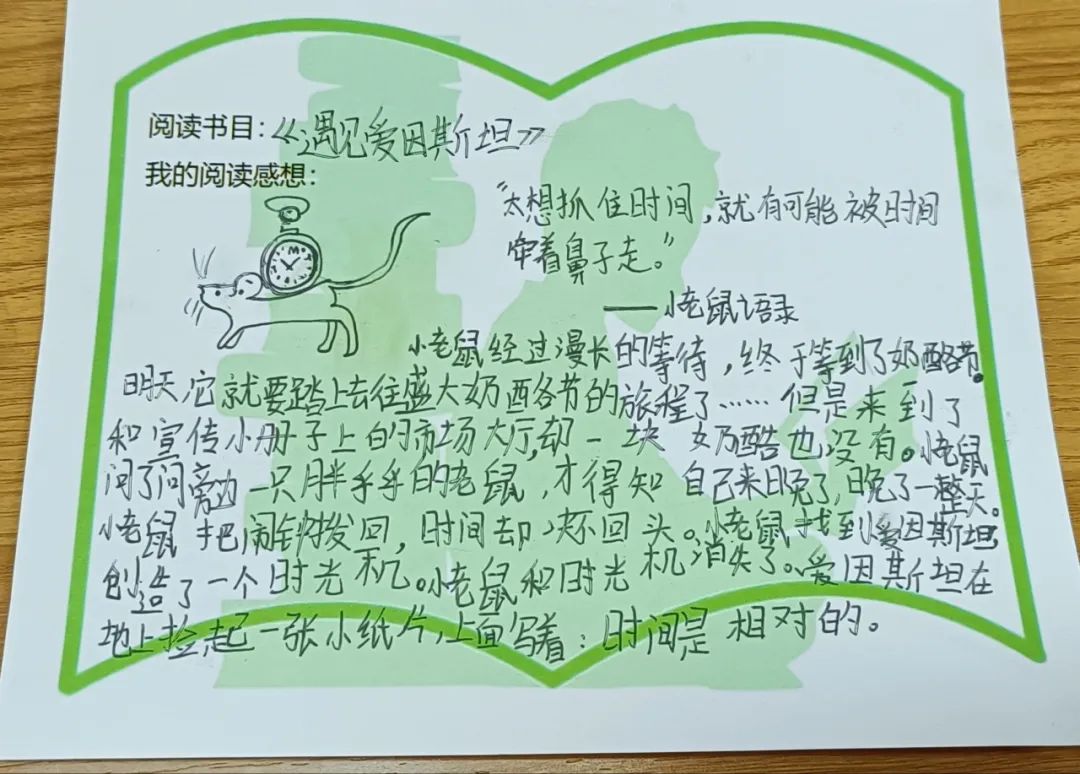 阅读书目：《遇见爱因斯坦》
我的阅读感想：
“太想抓住时间，就有可能被时间
牵着鼻子走。”
——小老鼠语录
小老鼠经过漫长的等待，终于等到了奶酪节。
明天，它就要踏上去往盛大奶酪节的旅程了……但是来到了
和宣传小册子上的市场大厅，却一块奶酪也没有。小老鼠
问了问旁边一只胖乎乎的老鼠，才得知自己来晚了，晚了一整天。
小老鼠把闹钟拨回，时间却不回头。小老鼠找到爱因斯坦
创造了一个时光机。小老鼠和时光机消失了。爱因斯坦在
地上捡起一张小纸片，上面写着：时间是相对的。